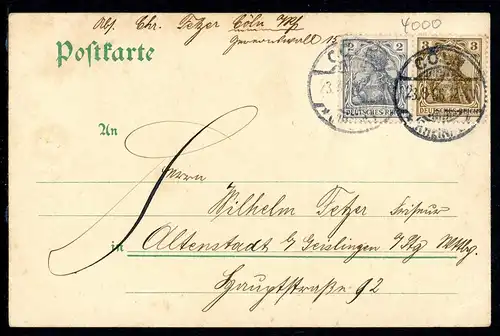 Abs. Chr. Tetzer Cöln a/Rh
4000
Gereonswall 15
Postkarte
2 2
DEUTSCHES REICH
3 3
DEUTSCHES REICH
CÖLN
23.
CÖLN
23.6.
(RHEIN)
An
Herrn
Wilhelm Tetzer Friseur
in Altenstadt b/ Geislingen a/Stg Wttbg.
Hauptstraße 92